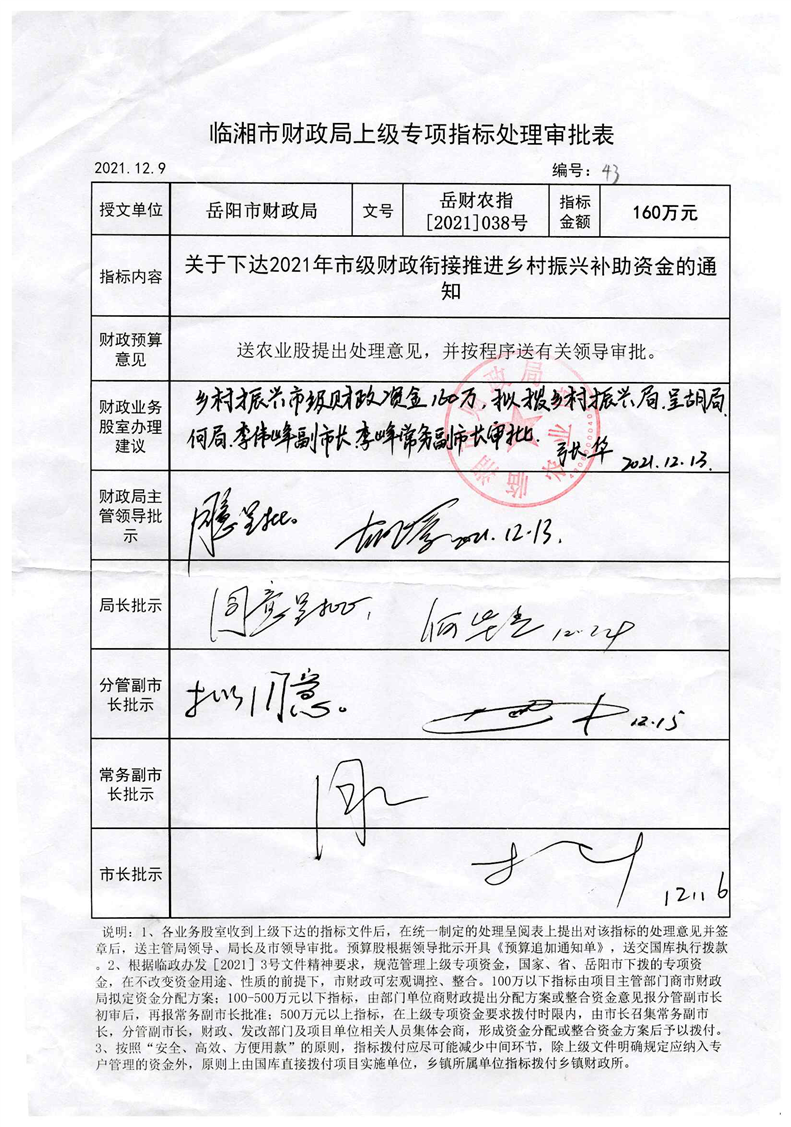 临湘市财政局上级专项指标处理审批表
2021.12.9 编号：43
授文单位 岳阳市财政局 文号 岳财农指[2021]038号 指标金额 160万元
指标内容 关于下达2021年市级财政衔接推进乡村振兴补助资金的通知
财政预算意见 送农业股提出处理意见，并按程序送有关领导审批。
财政业务股室办理建议 乡村振兴市级财政资金160万，拟拨乡村振兴局.呈胡局
何局.李伟峰副市长.李峰常务副市长审批.
张华 2021.12.13.
财政局主管领导批示 同意呈批。 2021.12.13.
局长批示 同意呈批，
分管副市长批示 拟同意。 12.15
常务副市长批示 同意
市长批示 12.16
说明：1、各业务股室收到上级下达的指标文件后，在统一制定的处理呈阅表上提出对该指标的处理意见并签
章后，送主管局领导、局长及市领导审批。预算股根据领导批示开具《预算追加通知单》，送交国库执行拨款
。2、根据临政办发[2021]3号文件精神要求，规范管理上级专项资金，国家、省、岳阳市下拨的专项资
金，在不改变资金用途、性质的前提下，市财政可宏观调控、整合。100万以下指标由项目主管部门商市财政
局拟定资金分配方案；100-500万元以下指标，由部门单位商财政提出分配方案或整合资金意见报分管副市长
初审后，再报常务副市长批准；500万元以上指标，在上级专项资金要求拨付时限内，由市长召集常务副市
长，分管副市长，财政、发改部门及项目单位相关人员集体会商，形成资金分配或整合资金方案后予以拨付。
3、按照“安全、高效、方便用款”的原则，指标拨付应尽可能减少中间环节，除上级文件明确规定应纳入专
户管理的资金外，原则上由国库直接拨付项目实施单位，乡镇所属单位指标拨付乡镇财政所。